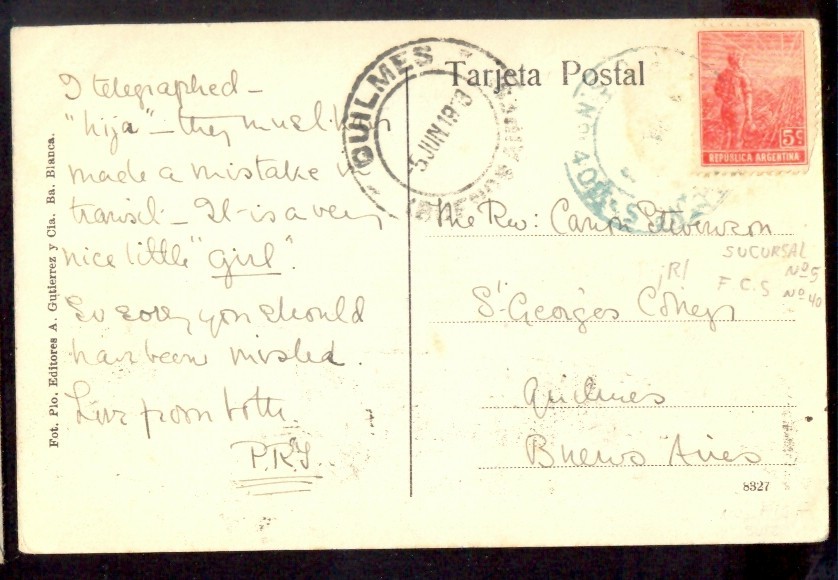 I telegraphed –
"hija" – they must have
made a mistake in
transit – It is a very
nice little "girl".
So sorry you should
have been misled.
Love from both.
P.R.S.
Fot. Plo. Editores A. Gutierrez y Cia. Ba. Blanca.
Tarjeta Postal
QUILMES
5 JUN 19
BUENOS AIRES
5c
REPÚBLICA ARGENTINA
The Rev: Canon Stevenson
SUCURSAL
Nº 5
¡R!
F.C.S Nº 40
St Georges College
Quilmes
Buenos Aires
8327